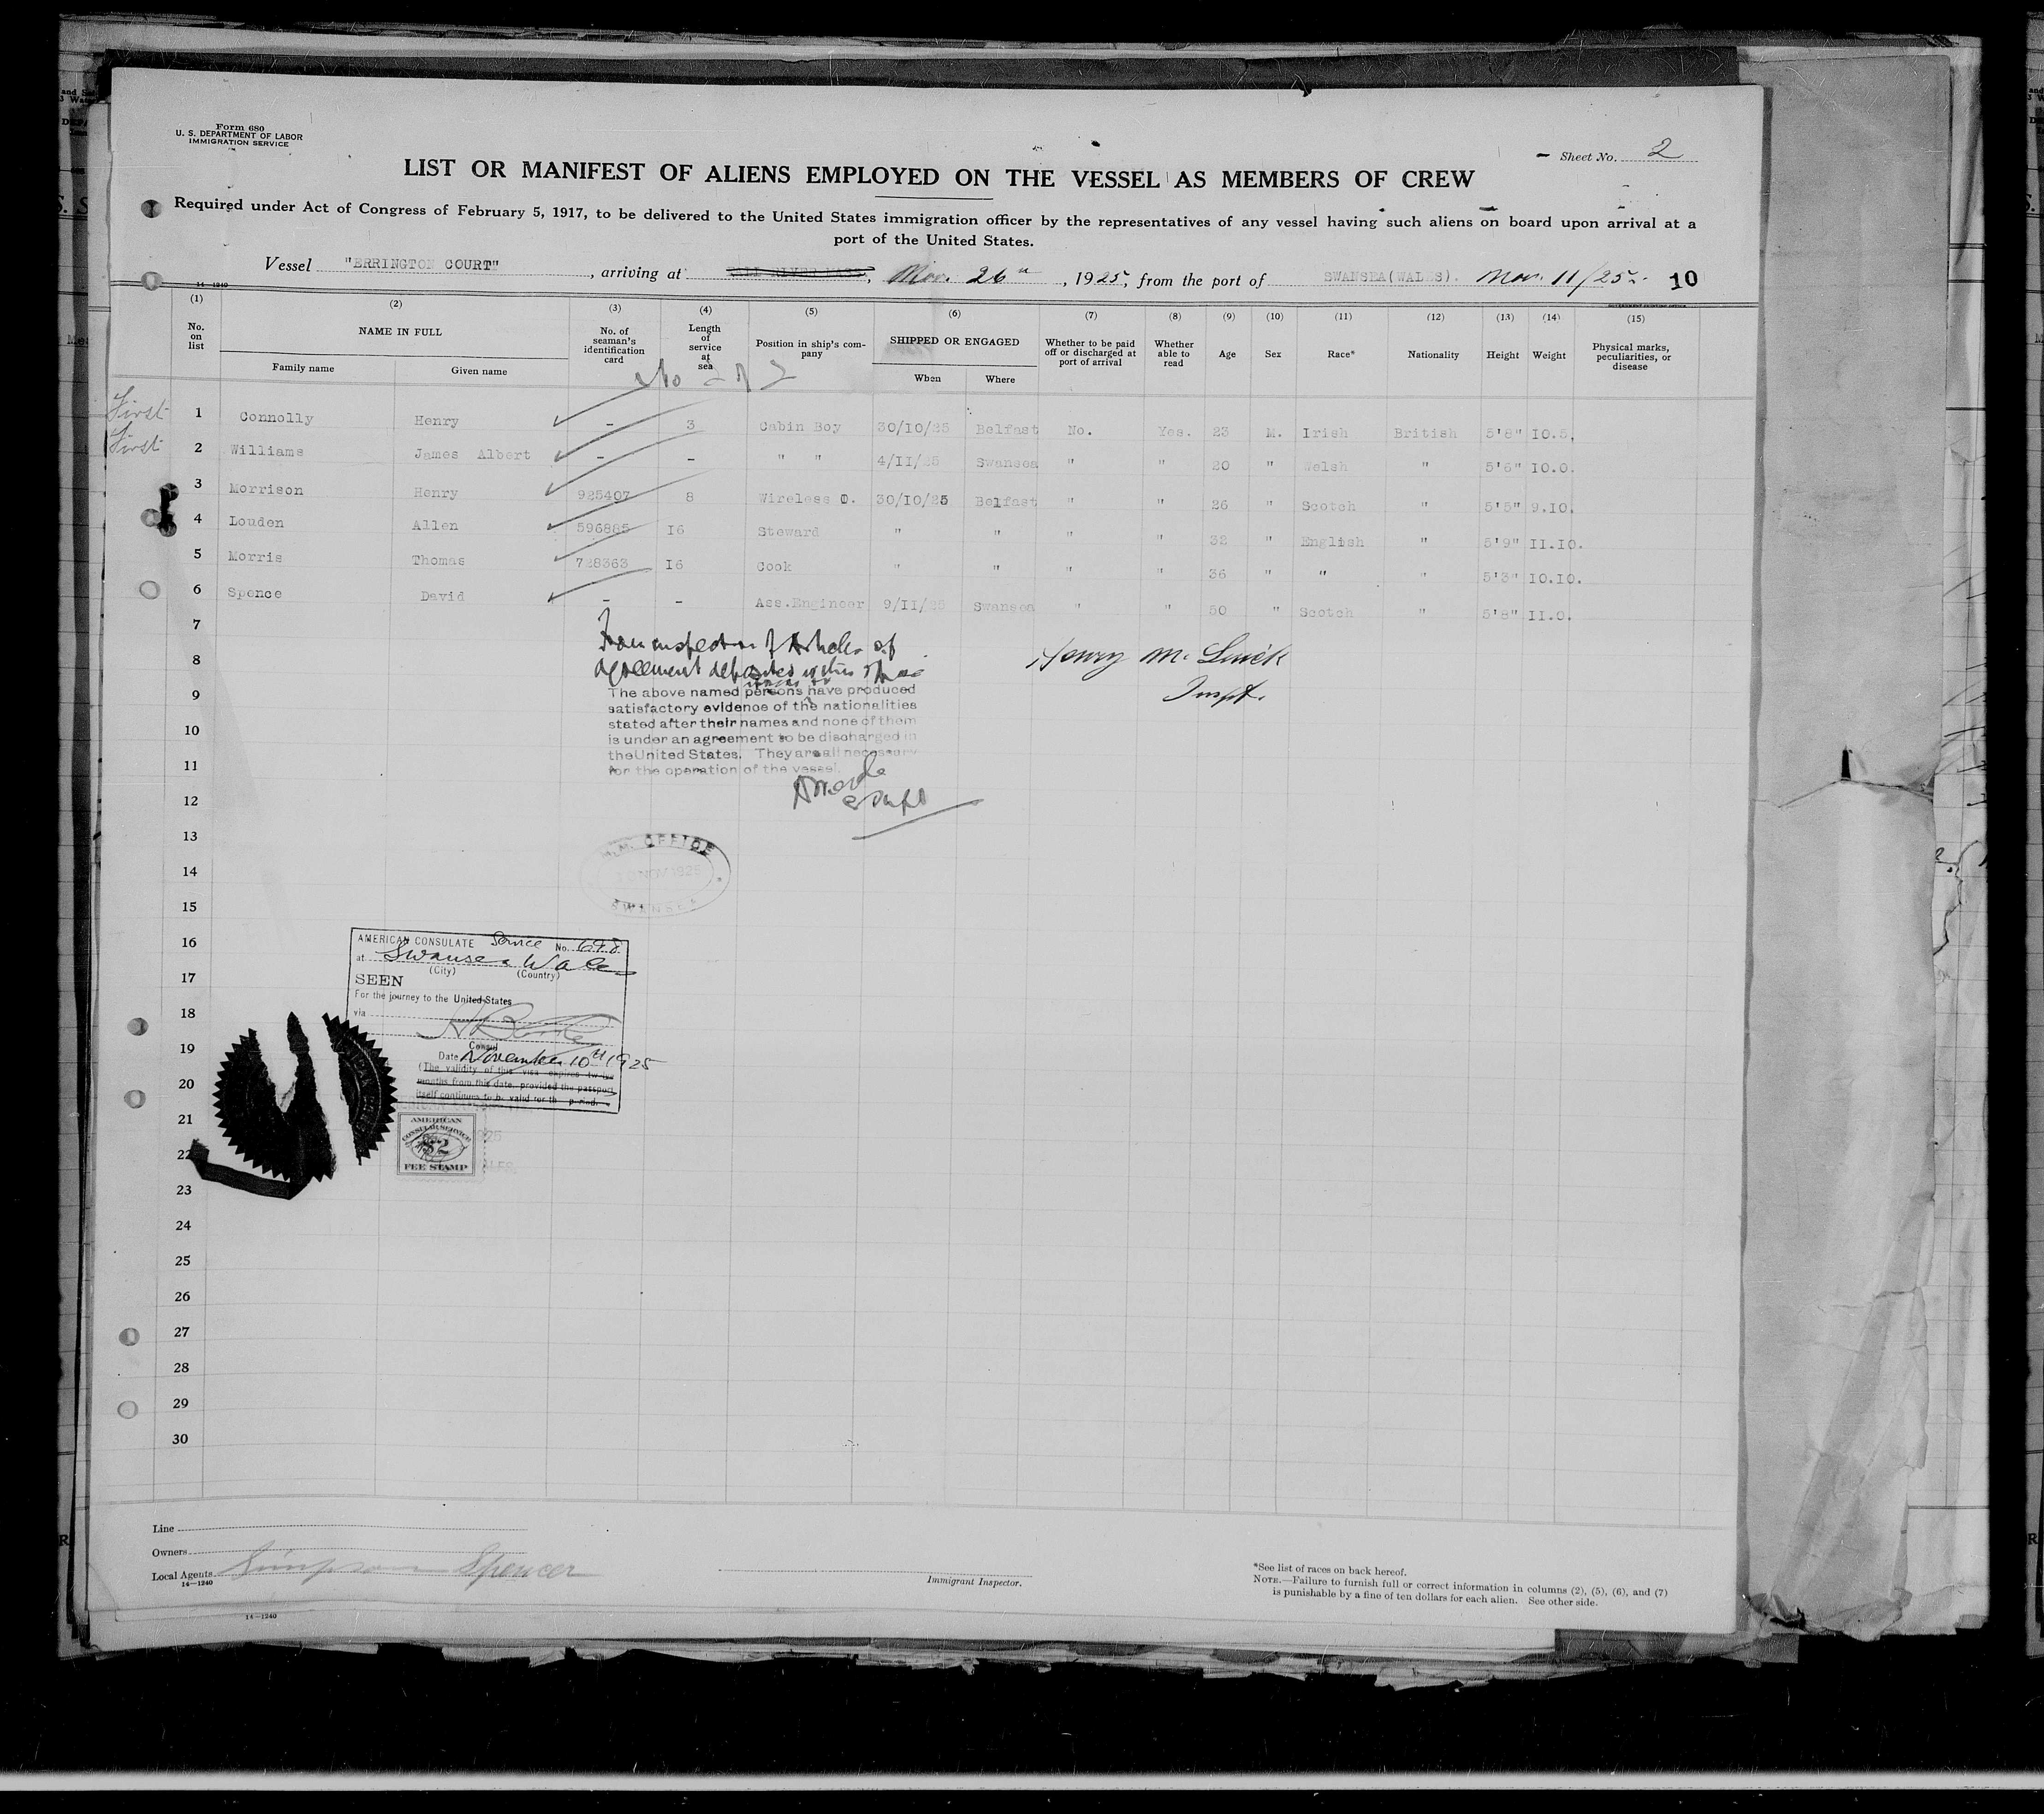 Form 680
U. S. DEPARTMENT OF LABOR
IMMIGRATION SERVICE
Sheet No. 2
LIST OR MANIFEST OF ALIENS EMPLOYED ON THE VESSEL AS MEMBERS OF CREW
Required under Act of Congress of February 5, 1917, to be delivered to the United States immigration officer by the representatives of any vessel having such aliens on board upon arrival at a
port of the United States.
Vessel "ERRINGTON COURT", arriving at , Nov. 26th, 1925, from the port of SWANSEA(WALES). Nov. 11/25. 10
14—1240
(1) (2) (3) (4) (5) (6) (7) (8) (9) (10) (11) (12) (13) (14) (15)
No. on list NAME IN FULL No. of seaman's identification card Length of service at sea Position in ship's company SHIPPED OR ENGAGED Whether to be paid off or discharged at port of arrival Whether able to read Age Sex Race* Nationality Height Weight Physical marks, peculiarities, or disease
Family name Given name When Where
First 1 Connolly Henry - 3 Cabin Boy 30/10/25 Belfast No. Yes. 23 M. Irish British 5'8" 10.5.
First 2 Williams James Albert - - " " 4/11/25 Swansea " " 20 " Welsh " 5'6" 10.0.
3 Morrison Henry 925407 8 Wireless O. 30/10/25 Belfast " " 26 " Scotch " 5'5" 9.10.
4 Louden Allen 596885 16 Steward " " " " 32 " English " 5'9" 11.10.
5 Morris Thomas 728363 16 Cook " " " " 36 " " " 5'3" 10.10.
6 Spence David - - Ass.Engineer 9/11/25 Swansea " " 50 " Scotch " 5'8" 11.0.
7
8
9
10
11
12
13
14
15
16
17
18
19
20
21
22
23
24
25
26
27
28
29
30
From inspection of Articles of
agreement deposited in this office
The above named persons have produced
satisfactory evidence of the nationalities
stated after their names and none of them
is under an agreement to be discharged in
the United States. They are all necessary
for the operation of the vessel.
Supt
Henry
Inspt.
M.M. OFFICE
NOV 1925
SWANSEA
AMERICAN CONSULATE Service No. 648
at Swansea Wales
(City) (Country)
SEEN
For the journey to the United States
via
Consul
Date November 10th 1925
(The validity of this visa expires twelve
months from this date, provided the passport
itself continues to be valid for th period.
AMERICAN
CONSULAR SERVICE
$2
FEE STAMP
Line
Owners
Local Agents Simpson Spencer
14—1240
Immigrant Inspector.
*See list of races on back hereof.
NOTE.—Failure to furnish full or correct information in columns (2), (5), (6), and (7)
is punishable by a fine of ten dollars for each alien. See other side.
14—1240